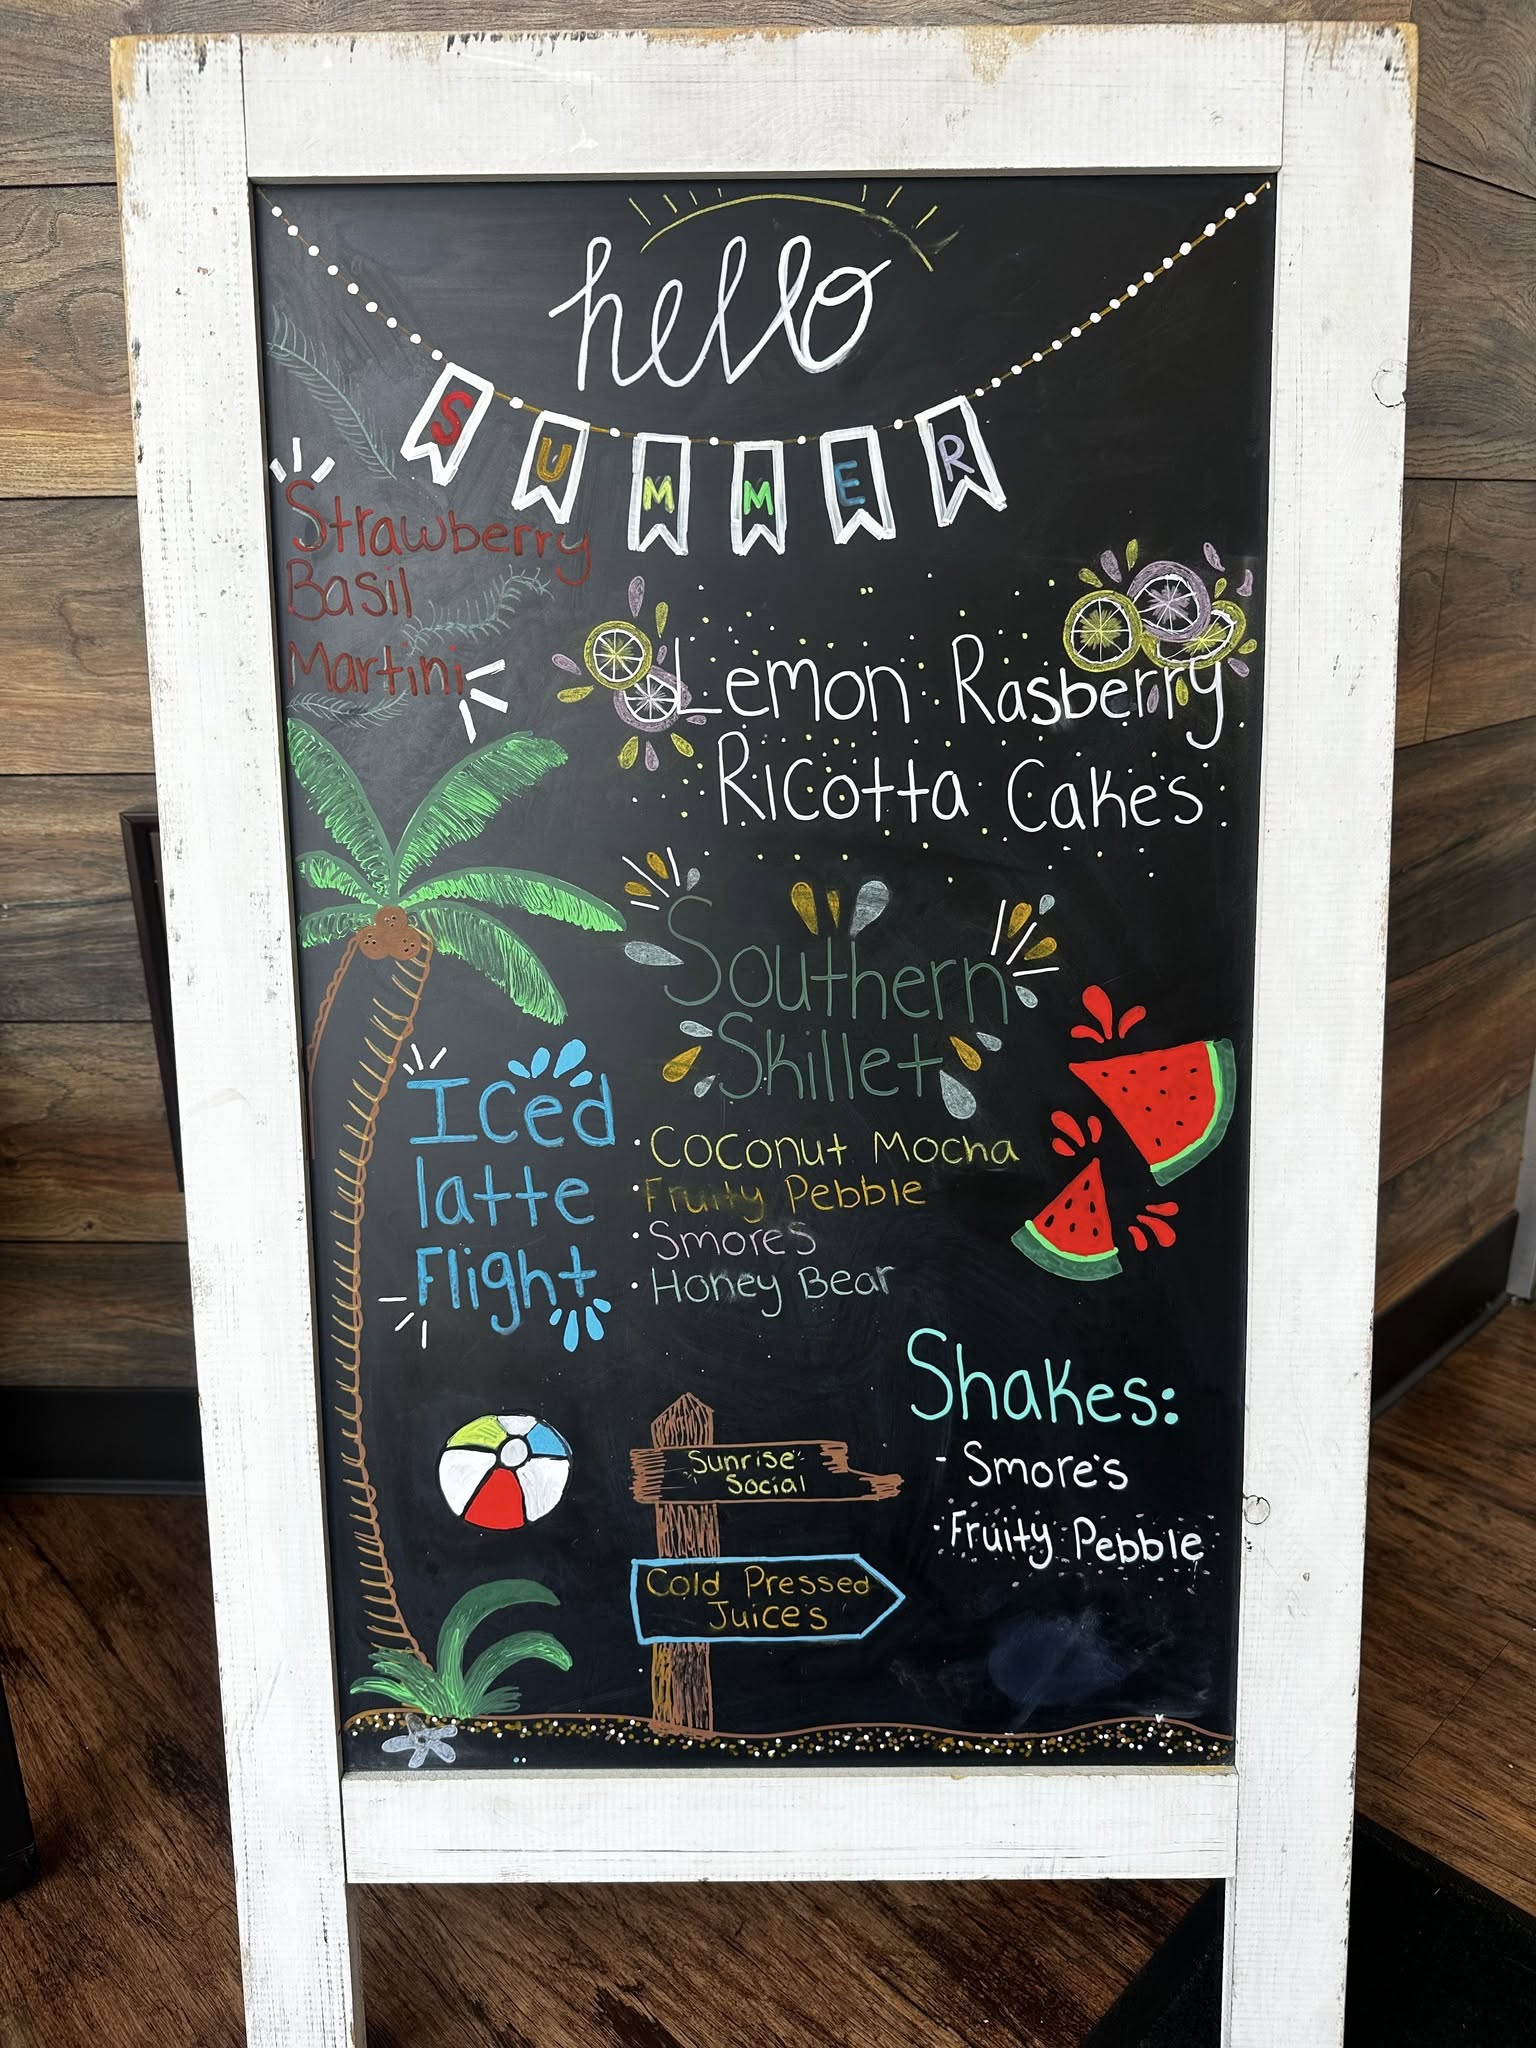 hello
SUMMER
Strawberry
Basil
Martini
Lemon Rasberry
Ricotta Cakes
Southern
Skillet
Iced
latte
Flight
• Coconut Mocha
• Fruity Pebble
• Smores
• Honey Bear
Shakes:
- Smore's
• Fruity Pebble
Sunrise
Social
Cold Pressed
Juices